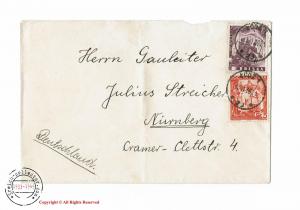 Herrn Gauleiter
Julius Streicher
Nürnberg
Cramer-Clettstr. 4.
Deutschland.
Copyright © All Rights Reserved